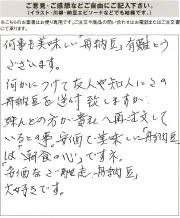 ご意見・ご感想などご自由にご記入下さい。
(イラスト・川柳・納豆エピソードなどでも結構です。)
何事も美味しい舟納豆、有難とう
ございます。
何かにつけて友人や知人にこの
舟納豆を送付致しますが
殆んどの方が貴社へ再注文して
いるとの事。安価で美味しい「舟納豆」
は「朝食の心」ですネ。
「安価なご馳走、舟納豆」
大好きです。